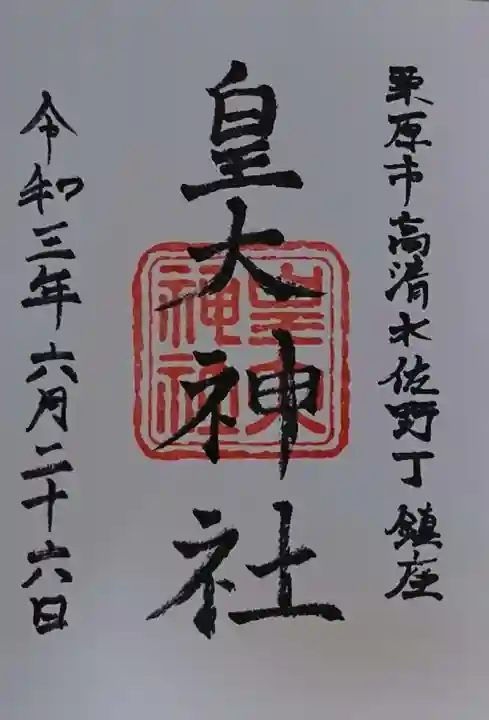 栗原市高清水佐野丁鎮座
皇大神社
令和三年六月二十六日